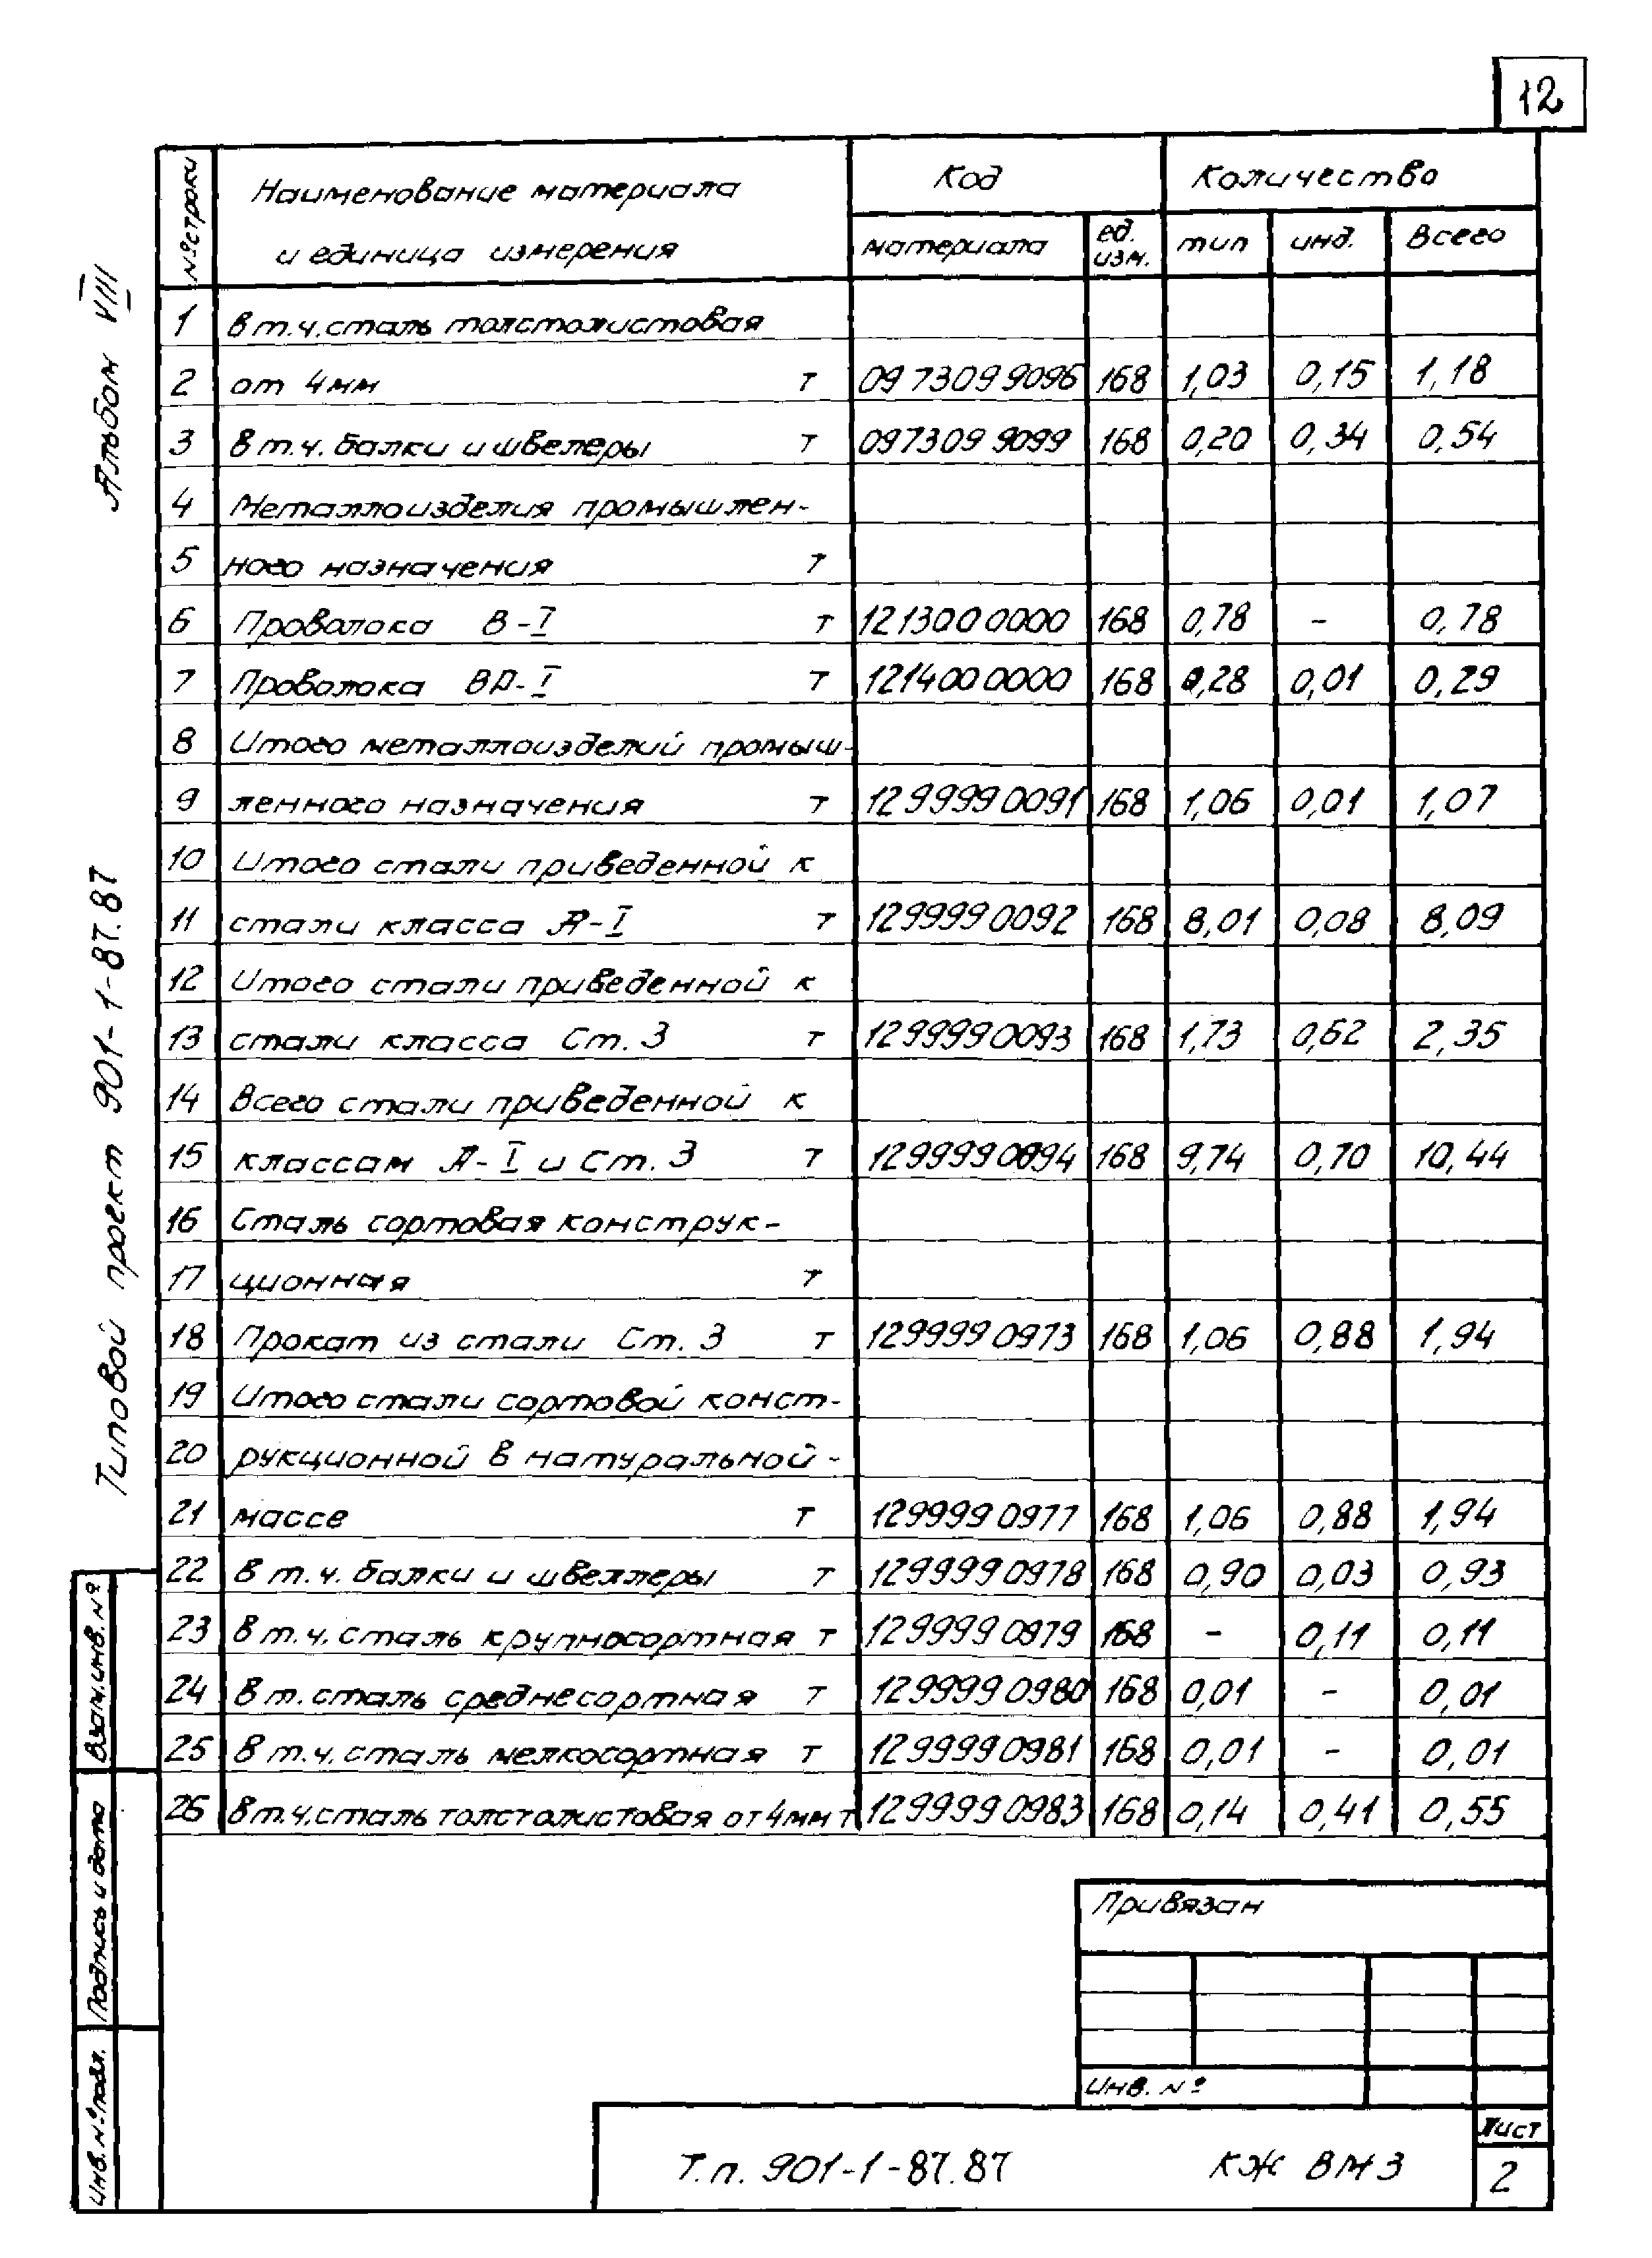 12
Альбом VIII
Типовой проект 901-1-87.87
№ строки | Наименование материала и единица измерения | Код | Количество
материала | ед. изм. | тип | инд. | Всего
1 в т.ч. сталь толстолистовая
2 от 4мм т 0973099096 168 1,03 0,15 1,18
3 в т.ч. балки и швелеры т 0973099099 168 0,20 0,34 0,54
4 Металлоизделия промышлен-
5 ного назначения т
6 Проволока В-I т 1213000000 168 0,78 - 0,78
7 Проволока ВР-I т 1214000000 168 0,28 0,01 0,29
8 Итого металлоизделий промыш-
9 ленного назначения т 1299990091 168 1,06 0,01 1,07
10 Итого стали приведенной к
11 стали класса А-I т 1299990092 168 8,01 0,08 8,09
12 Итого стали приведенной к
13 стали класса Ст.3 т 1299990093 168 1,73 0,62 2,35
14 Всего стали приведенной к
15 классам А-I и Ст.3 т 1299990094 168 9,74 0,70 10,44
16 Сталь сортовая конструк-
17 ционная т
18 Прокат из стали Ст.3 т 1299990973 168 1,06 0,88 1,94
19 Итого стали сортовой конст-
20 рукционной в натуральной -
21 массе т 1299990977 168 1,06 0,88 1,94
22 в т.ч. балки и швеллеры т 1299990978 168 0,90 0,03 0,93
23 в т.ч. сталь крупносортная т 1299990979 168 - 0,11 0,11
24 в т. сталь среднесортная т 1299990980 168 0,01 - 0,01
25 в т.ч. сталь мелкосортная т 1299990981 168 0,01 - 0,01
26 в т.ч. сталь толстолистовая от 4мм т 1299990983 168 0,14 0,41 0,55
Взам.инв.№
Подпись и дата
Инв.№ подл.
Привязан
Инв. №
Т.п. 901-1-87.87 КЖ ВМ3
Лист
2